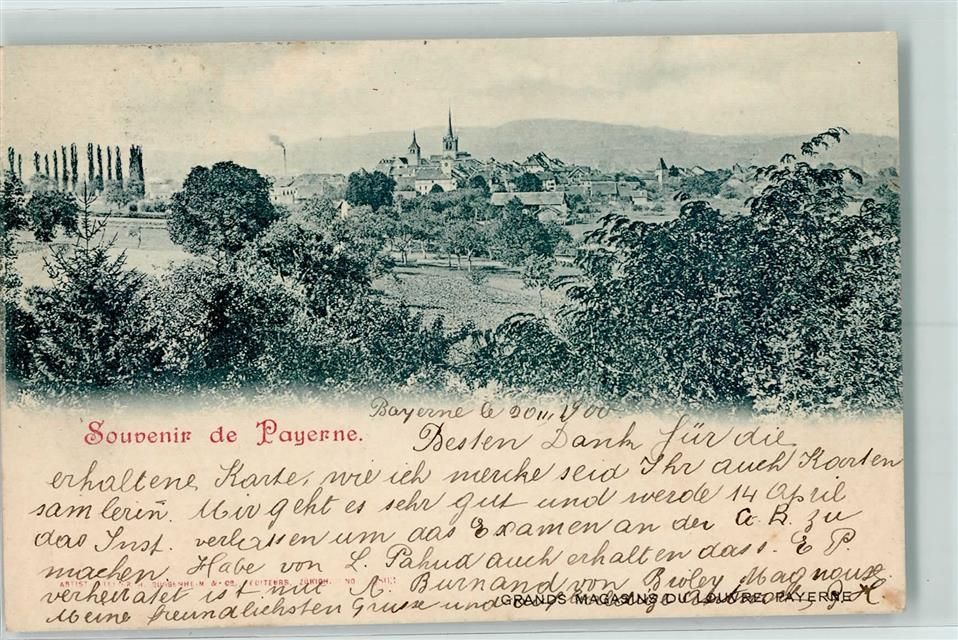 Payerne le 20 III 1900
Souvenir de Payerne.
Besten Dank für die
erhaltene Karte, wie ich mercke seid Ihr auch Karten
samlerin̄. Mir geht es sehr gut und werde 14 April
das Inst. verlassen um das Examen an der G. B. zu
machen. Habe von L. Pahud auch erhalten dass. E P.
verheiratet ist mit A. Burnand von Bioley Magnoux
Meine freundlichsten Grüsse und
GRANDS MAGASINS DU LOUVRE, PAYERNE